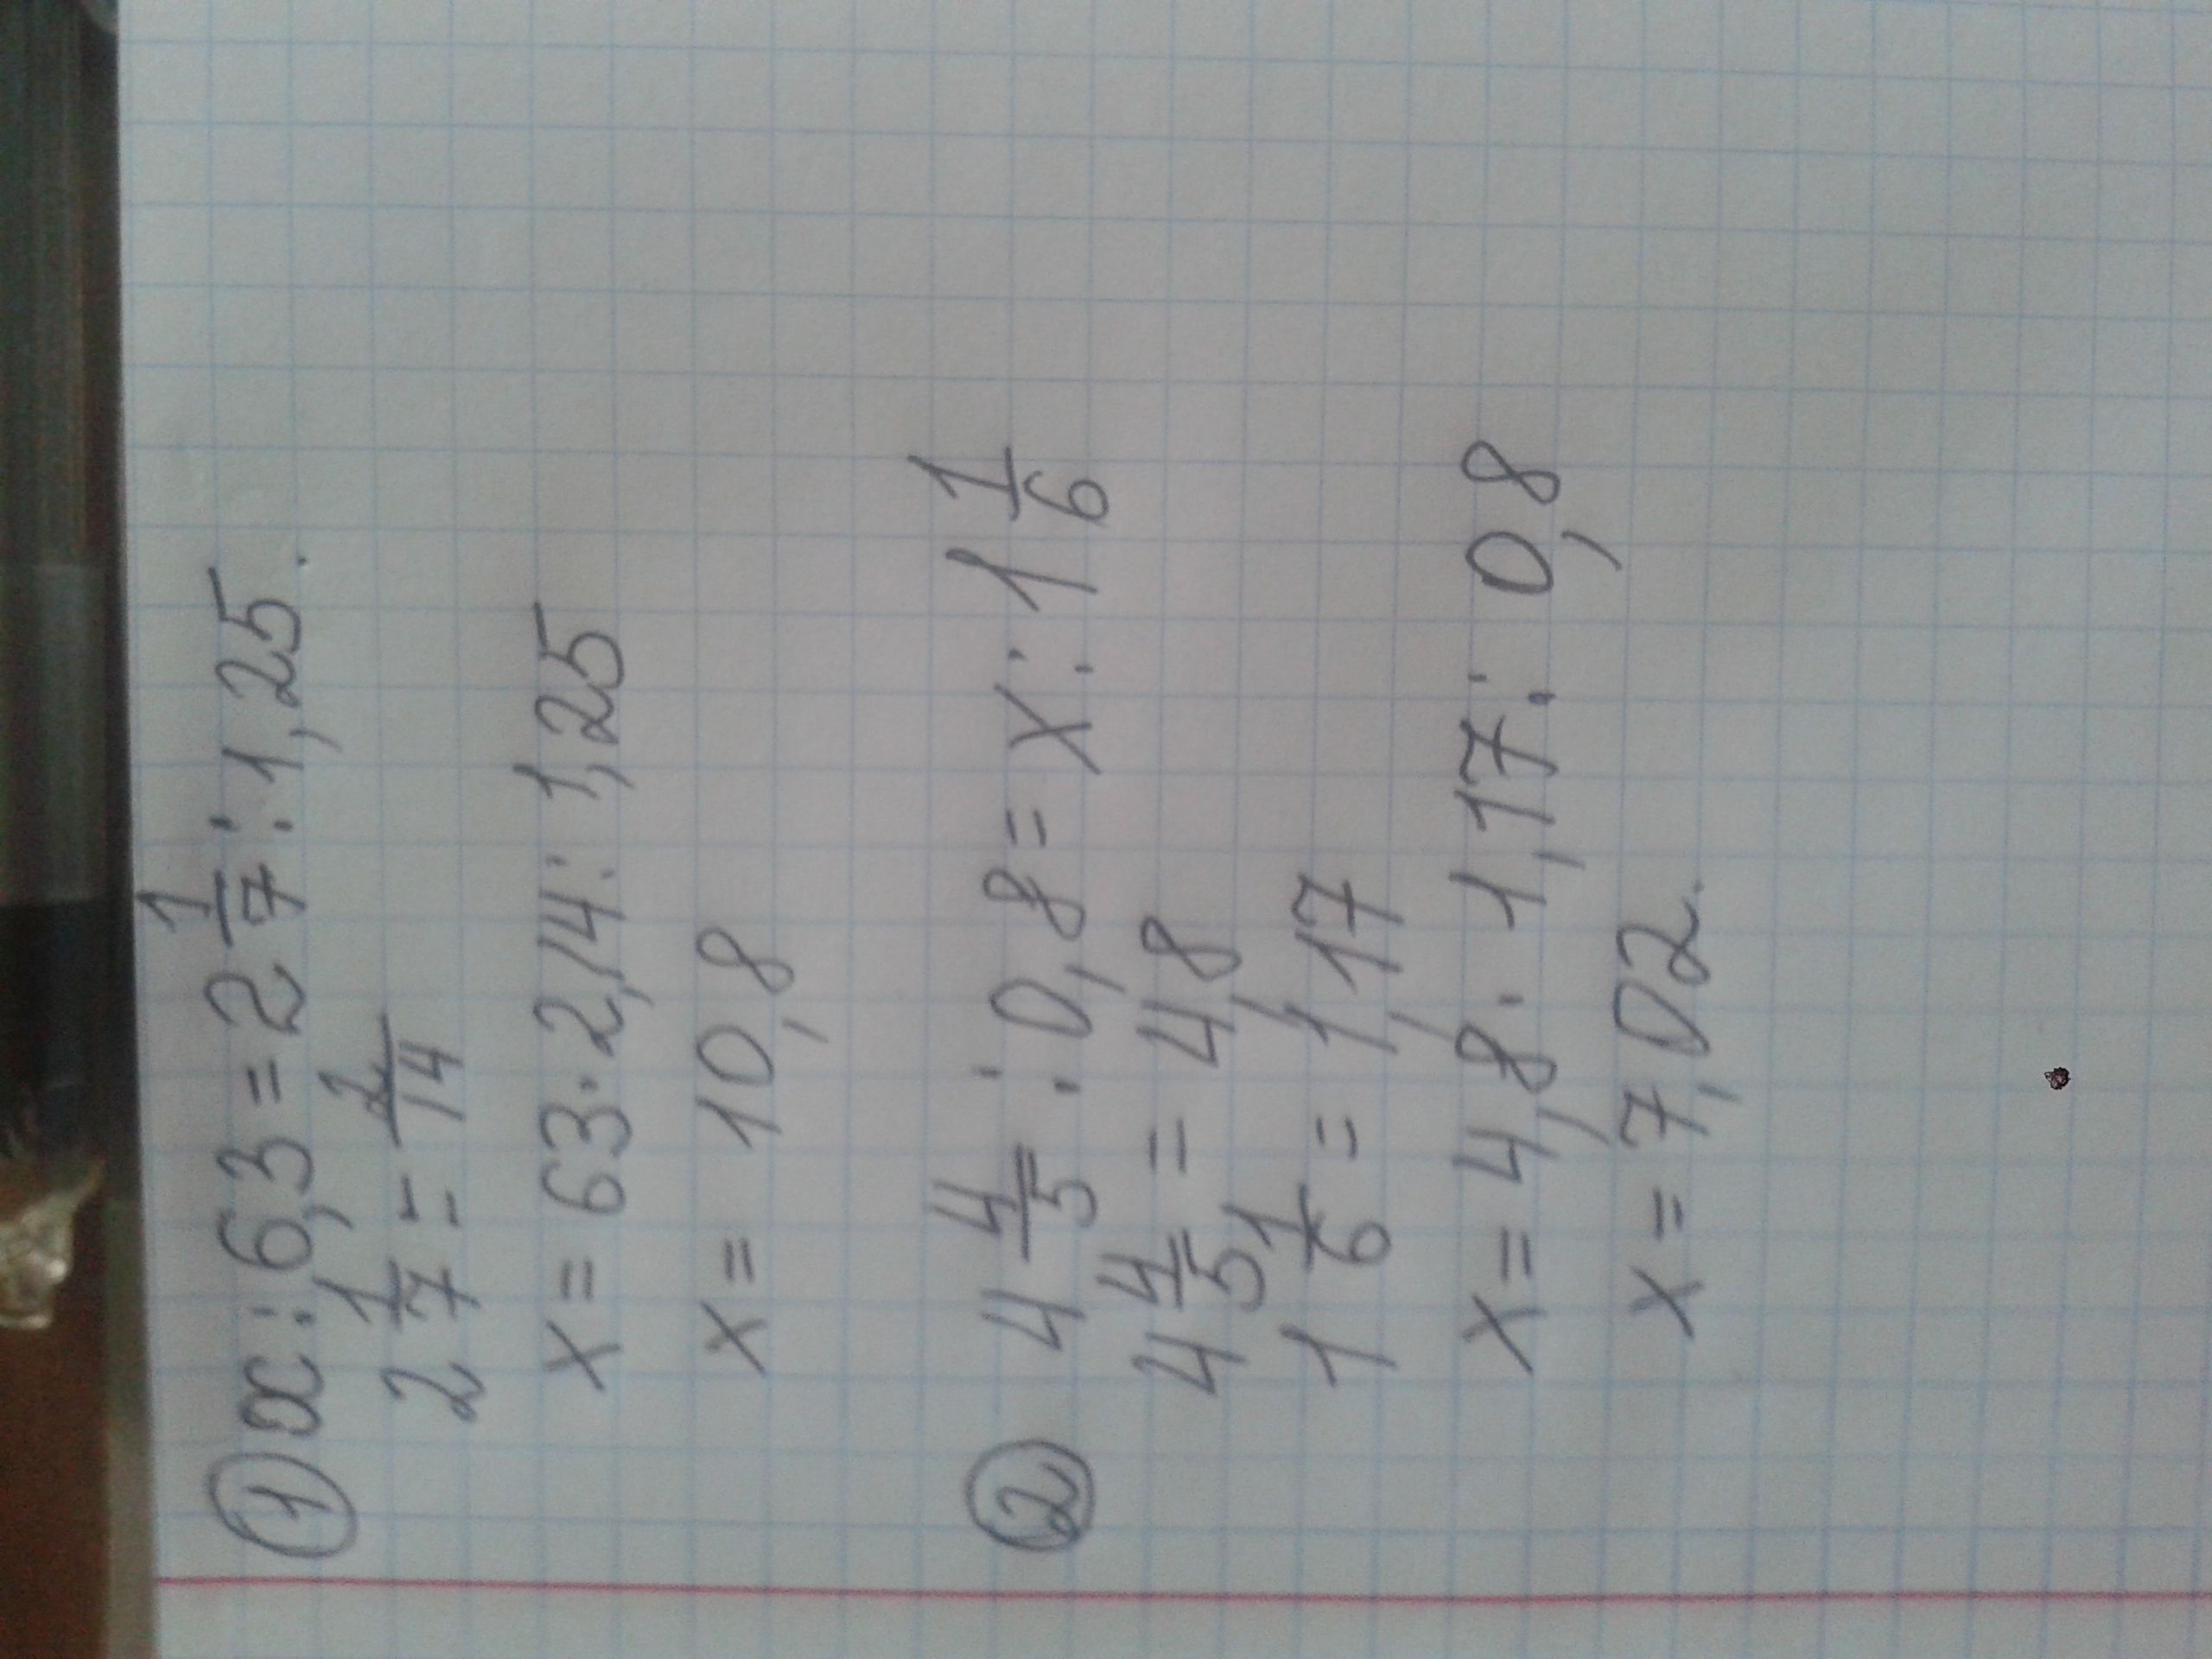 ① x : 6,3 = 2 1/7 : 1,25.
2 1/7 = 2/14
x = 63 · 2,14 : 1,25
x = 10,8
② 4 4/5 : 0,8 = x : 1 1/6
4 4/5 = 4,8
1 1/6 = 1,17
x = 4,8 · 1,17 : 0,8
x = 7,02.